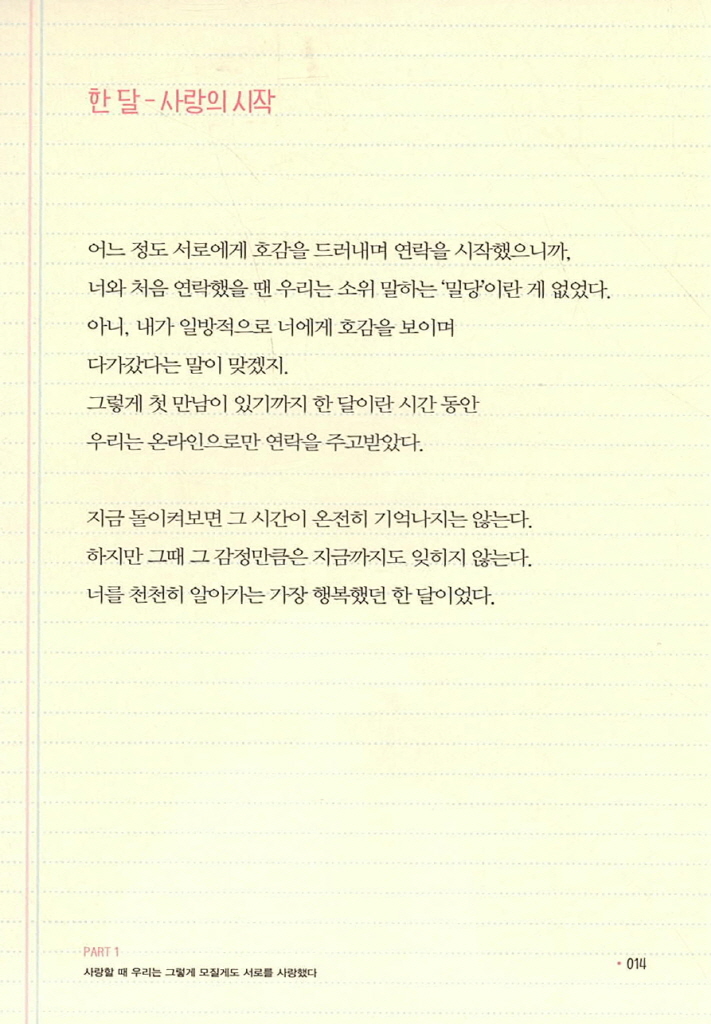 한 달 - 사랑의 시작
어느 정도 서로에게 호감을 드러내며 연락을 시작했으니까,
너와 처음 연락했을 땐 우리는 소위 말하는 ‘밀당’이란 게 없었다.
아니, 내가 일방적으로 너에게 호감을 보이며
다가갔다는 말이 맞겠지.
그렇게 첫 만남이 있기까지 한 달이란 시간 동안
우리는 온라인으로만 연락을 주고받았다.
지금 돌이켜보면 그 시간이 온전히 기억나지는 않는다.
하지만 그때 그 감정만큼은 지금까지도 잊히지 않는다.
너를 천천히 알아가는 가장 행복했던 한 달이었다.
PART 1
사랑할 때 우리는 그렇게 모질게도 서로를 사랑했다
• 014